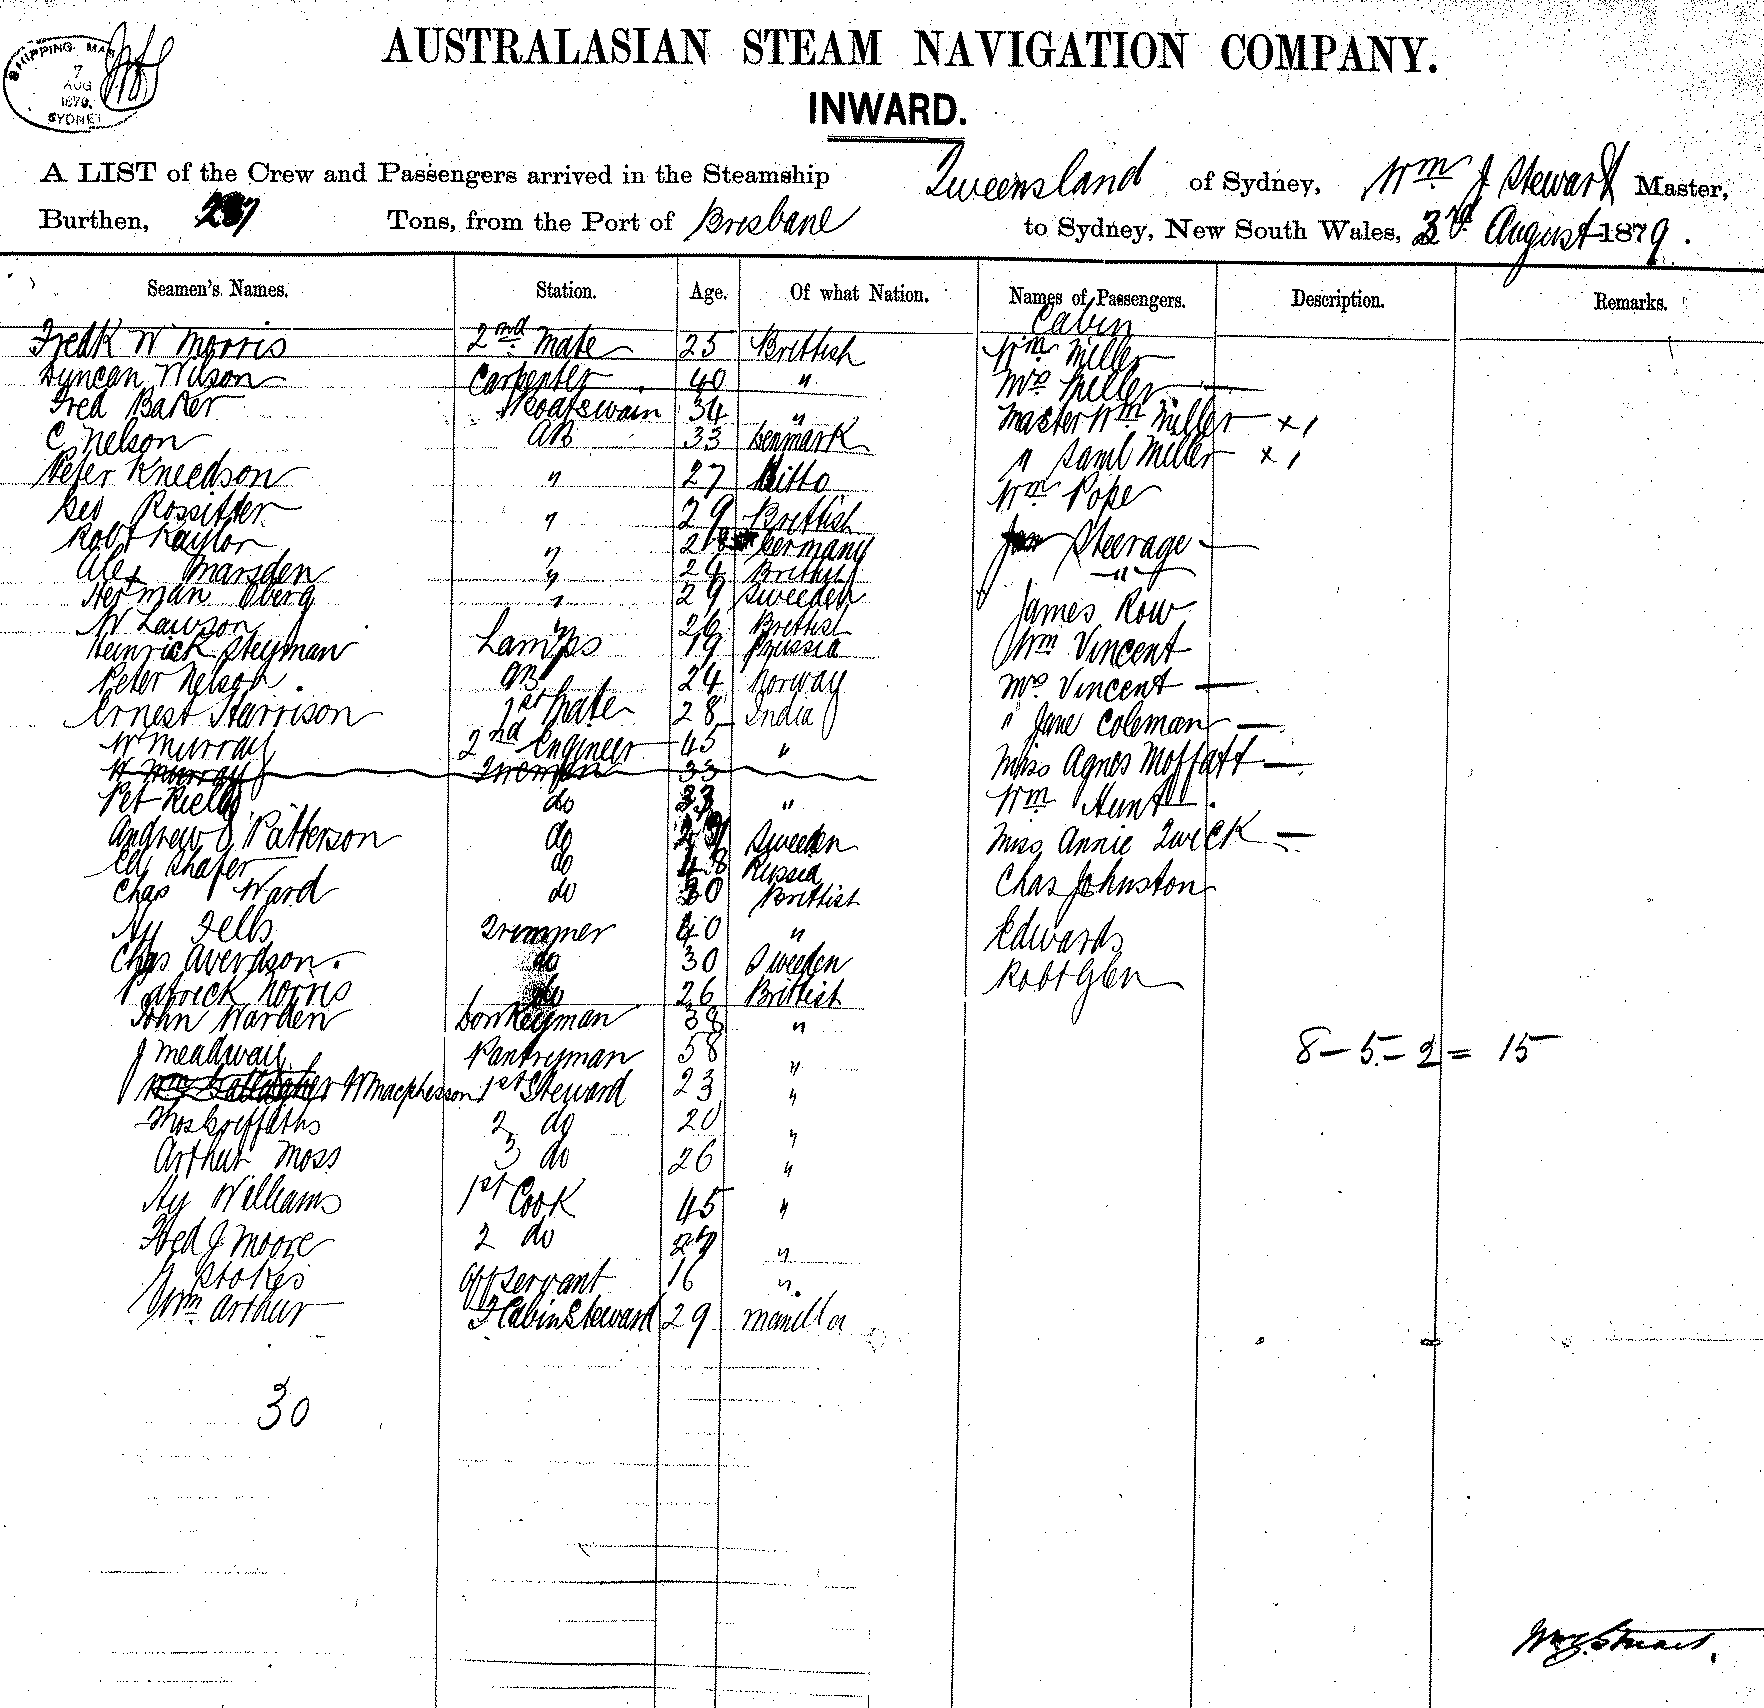 SHIPPING MAS
7
AUG
1879.
SYDNEY
AUSTRALASIAN STEAM NAVIGATION COMPANY.
INWARD.
A LIST of the Crew and Passengers arrived in the Steamship Queensland of Sydney, Wm J Stewart Master,
Burthen, Tons, from the Port of Brisbane to Sydney, New South Wales, 3rd August 1879.
Seamen's Names. Station. Age. Of what Nation. Names of Passengers. Description. Remarks.
Cabin
Fredk W Morris 2nd Mate 25 Brittish Wm Miller
Duncan Wilson Carpenter 40 " Mrs Miller —
Fred Baker Boatswain 34 " Master Wm Miller — x 1
C Nelson AB 33 Denmark " Saml Miller x 1
Peter Kneedson " 27 Ditto Wm Pope
Geo Rossitter " 29 Brittish
Robt Kaylor " Germany Steerage —
Alex Marsden " 24 Brittish "
Herman Oberg " 29 Sweeden James Row
W Lawson " 26 Brittish Wm Vincent
Heinrick Steyman Lamps 19 Prussia
Peter Nelson. AB 24 Norway Mrs Vincent —
Ernest Harrison 1st Mate 28 India " Jane Coleman —
W Murray 2nd Engineer 45 " Miss Agnes Moffatt —
W Murray Fireman 33
Pet Rielly do 33 " Wm Hunt
Andrew Patterson do Sweeden Miss Annie Zwick —
Shafer do 48 Russia
Chas Ward do 30 Brittish Chas Johnston
Hy Fells Trimmer 40 " Edwards
Chas Averdson. do 30 Sweeden Robt Glen
Patrick Norris do 26 Brittish
John Warden Donkeyman 38 "
J Meadway Pantryman 58 " 8 – 5 – 2 = 15
Wm Gallagher W Macphesson 1st Steward 23 "
Thos Griffaths 2 do 20 "
Arthur Moss 3 do 26 "
Hy Williams 1st Cook 45 "
Fred J Moore 2 do 27 "
Stokes Off servant 16 "
Wm Arthur F Cabin Steward 29 Manilla
30
Wm J Stewart.